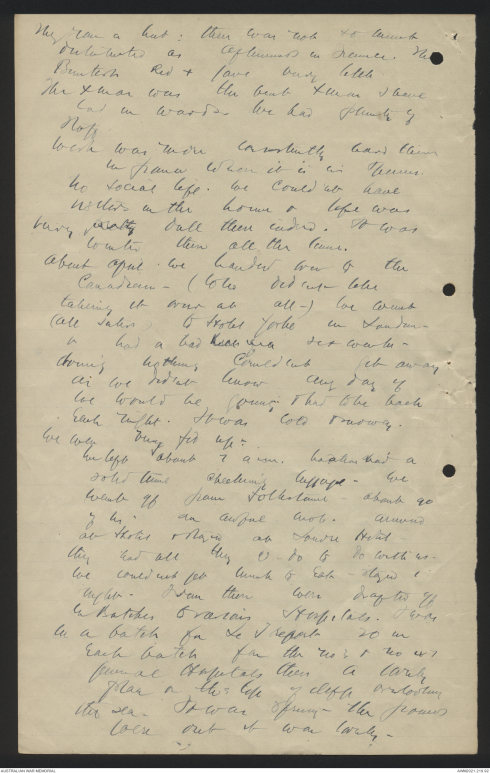 in a hut: there was not so much
as afternoons in France. The
British Red + gave very little
The Xmas was the best Xmas I have
had in wards. We had plenty of
Stuff
Work was more constantly hard there
in France where it is in
No social life. we couldn't have
in the home & life was
very dull there indeed. It was
there all the time.
About April we handed over to the
Canadians - (who did not like
taking it over at all -) We went
(all Sisters) to Hotel York in London -
& had a bad six weeks -
doing nothing couldn't get away
as we didn't know any day if
we would be going & had to be back
Each night. It was cold & snowy.
We were very fed up -
We left about 7 a.m. had a
solid time checking luggage - We
went off from Folkestone - about 90
of us an awful mob - arrived
at & stayed at Louvre Hotel -
they had all they to do with us -
We could not get much to Eat - stayed 1
night - From there were drafted off
in Batches to various Hospitals. I was
in a batch for Le Treport 20 in
Each batch for the no 3 &
General Hospitals there a lovely
place on the top of cliffs overlooking
the sea. It was Spring - the flowers
were out it was lovely -
AUSTRALIAN WAR MEMORIAL